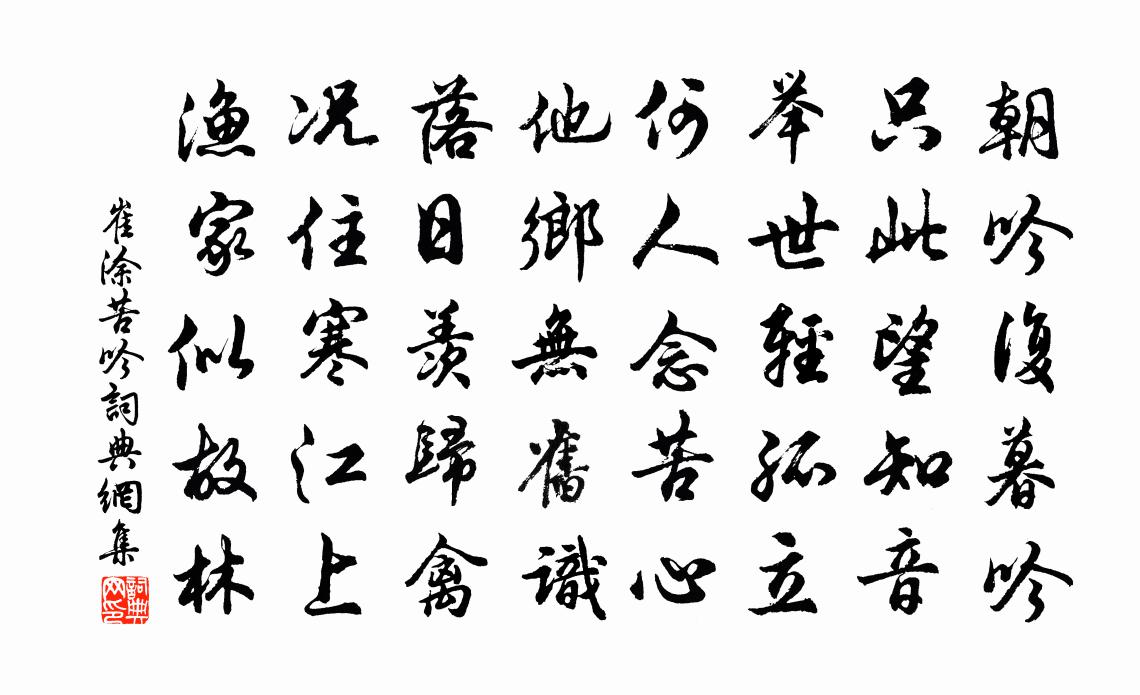 朝吟復暮吟
只此望知音
举世輕孤立
何人念苦心
他鄉無舊識
落日羨歸禽
况住寒江上
漁家似故林
崔涂苦吟詞典網集
詞典网印